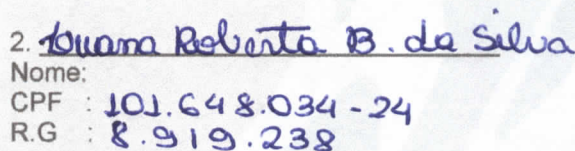 2. Luana Roberta B. da Silva
Nome:
CPF : 101.648.034-24
R.G : 8.919.238